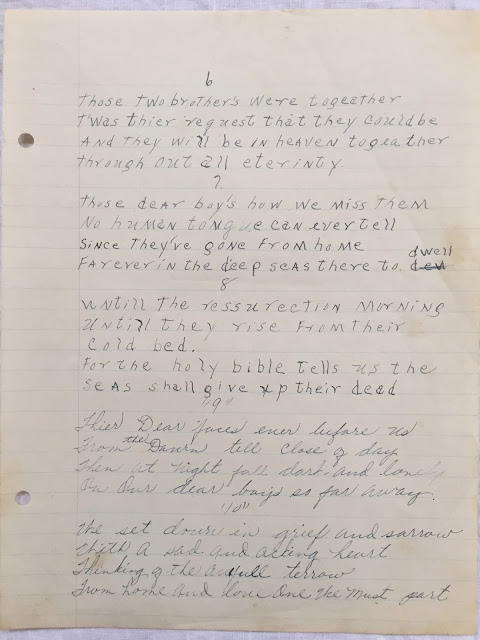 6
Those two brother's were togeather
T'was thier request that they could be
And they will be in heaven togeather
through out all eterinty.
7.
Those dear boy's how we miss them
No human tongue can ever tell
Since they've gone from home
Farever in the deep seas there to dwell
8
Untill the ressurection morning
Untill they rise from their
cold bed.
For the holy bible tells us the
seas shall give up their dead
"9"
Thier Dear faces ever before us
From the Dawn till close of day
Then at night fall dark and lonely
On Our dear boys so far away.
"10"
We set down in grief and sorrow
With a sad and acking heart
Thinking of the awfull terrow
From home and love One We Must part